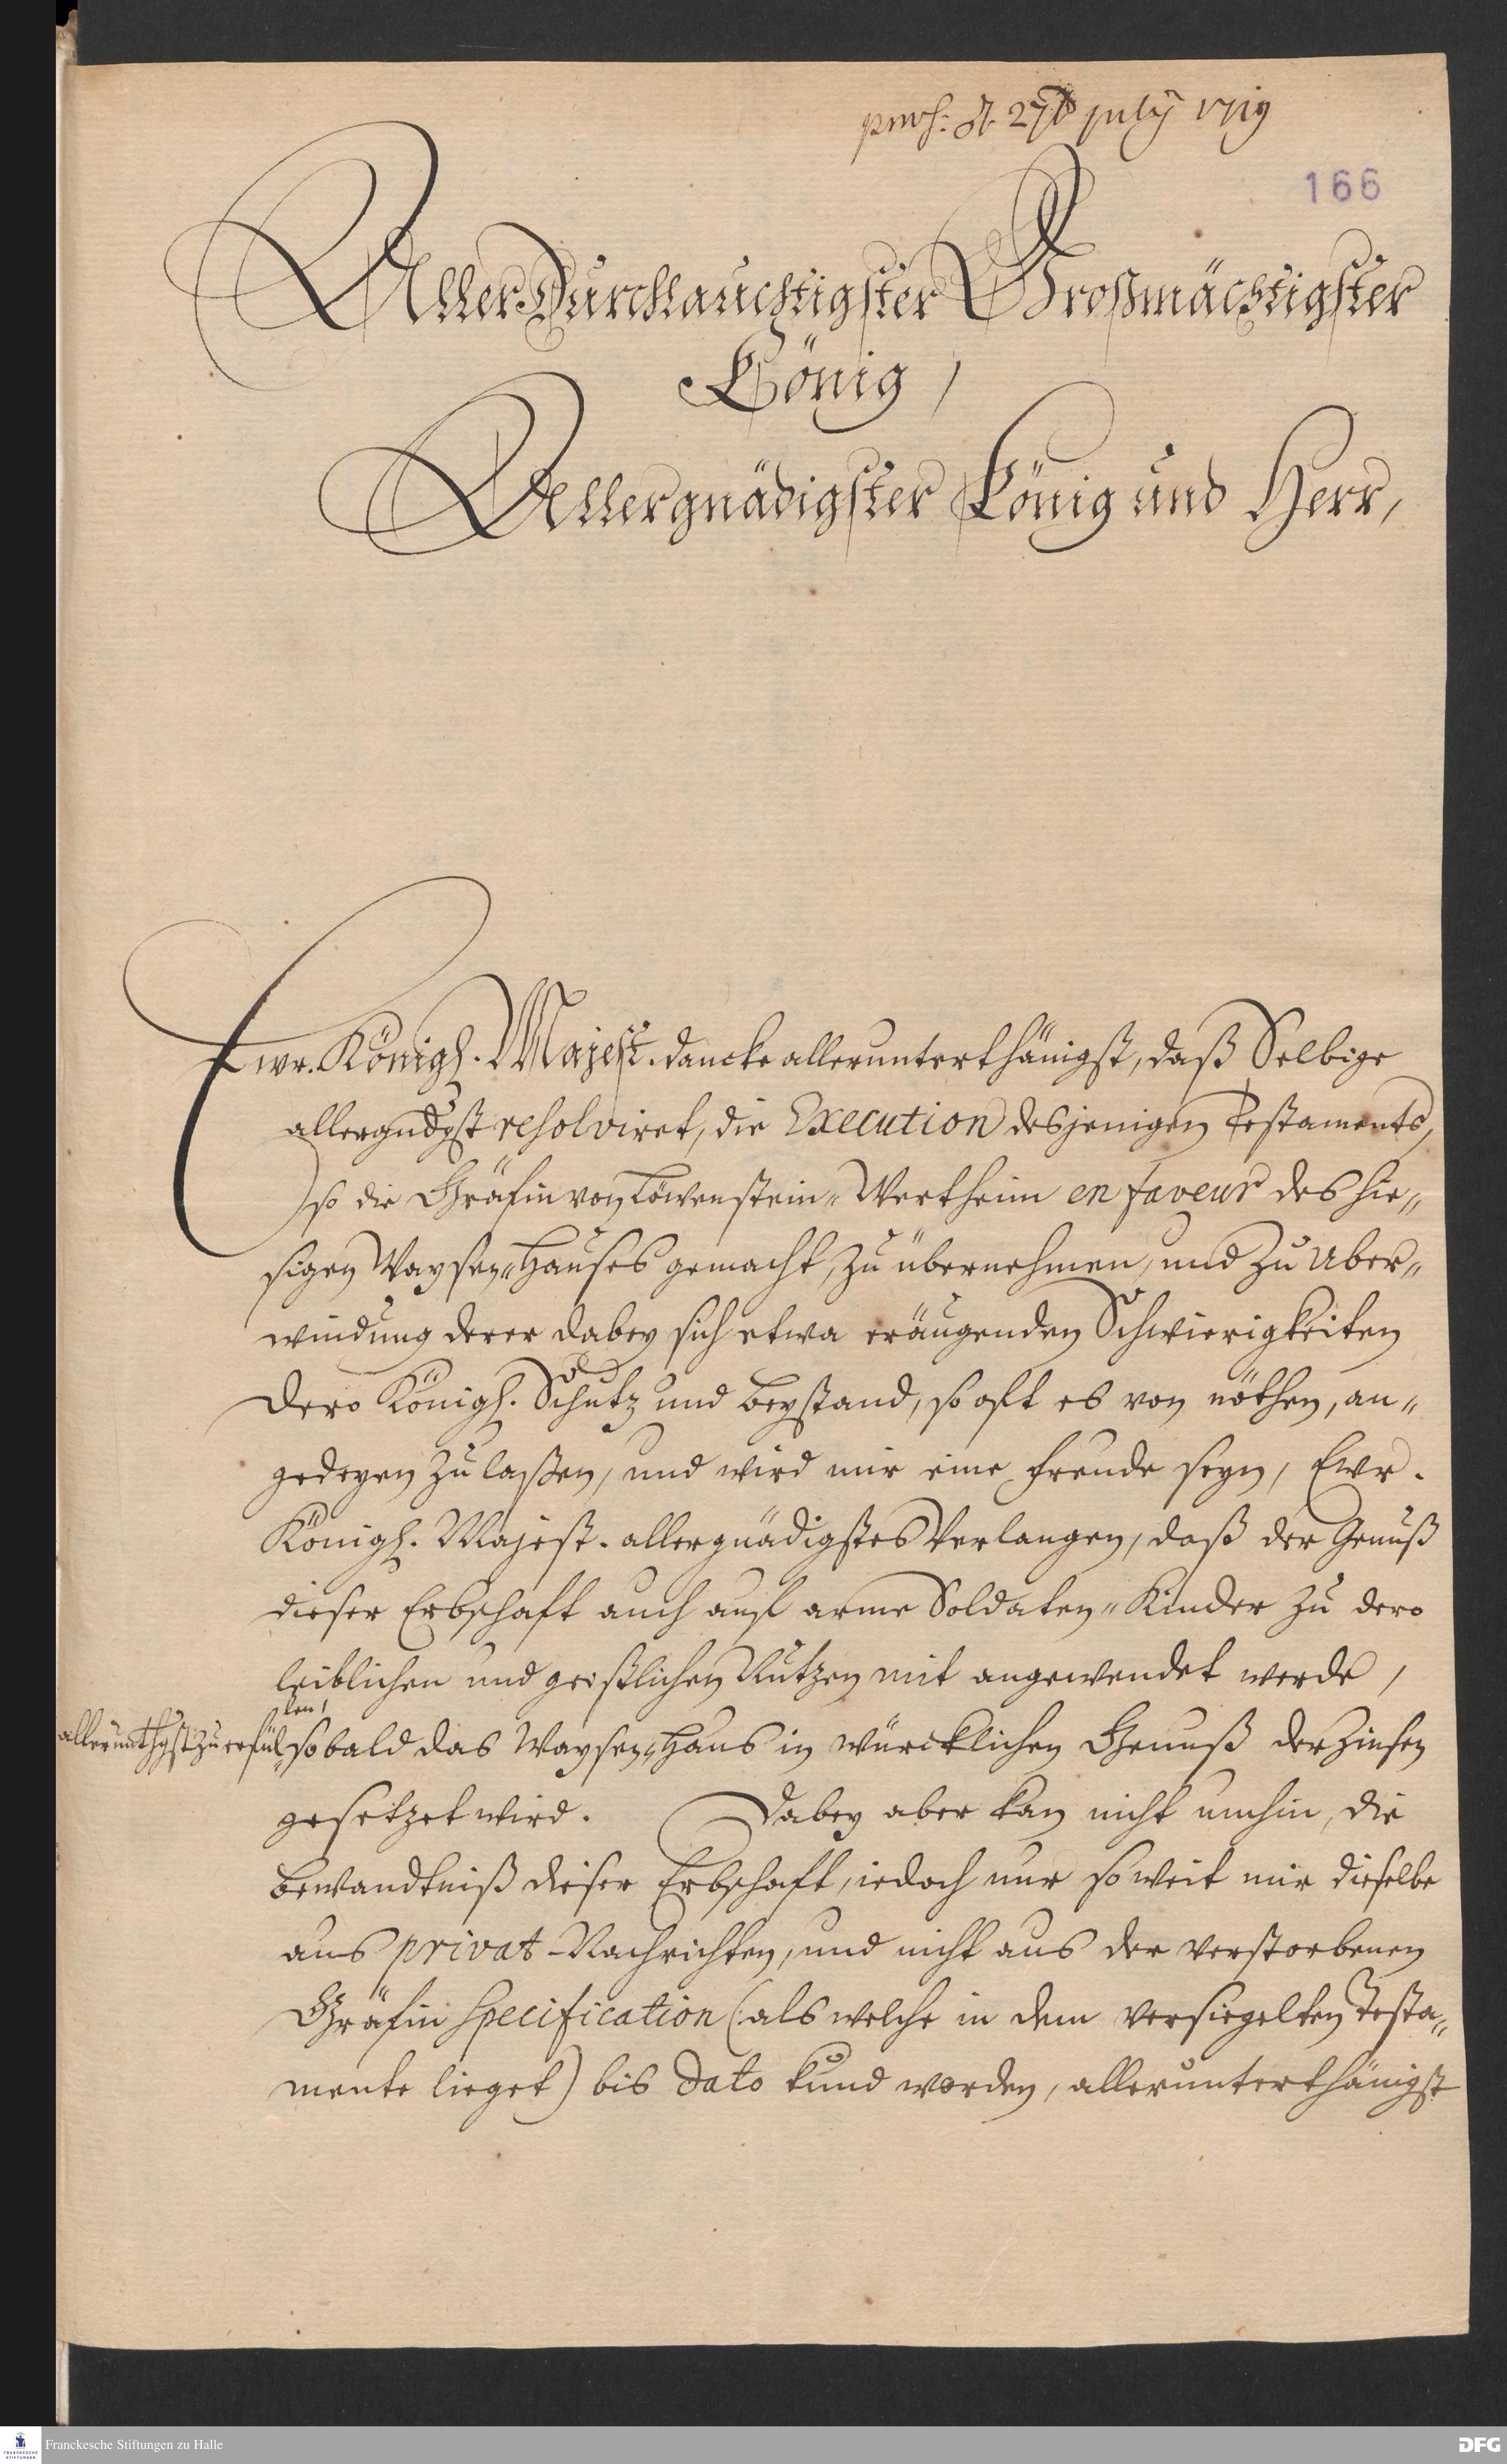 præs: d. 27t July 1719
166
Aller Durchlauchtigster Großmächtigster
König,
Allergnädigster König und Herr,
Ewr. Königl. Majest. dancke allerunterthänigst, daß Selbige
allergndgst resolviret, die Execution desjenigen Testaments,
so die Gräfin von Löwenstein-Wertheim en faveur des hie-
sigen Waysen-Hauses gemacht, zu übernehmen, und zu Uber-
windung derer dabey sich etwa eräugenden Schwierigkeiten
Dero Königl. Schutz und Beystand, so oft es von nöthen, an-
gedeyen zu laßen, und wird mir eine Freude seyn, Ewr.
Königl. Majest. allergnädigstes Verlangen, daß der Genuß
dieser Erbschaft auch auf arme Soldaten-Kinder zu dero
leiblichen und geistlichen Nutzen mit angewendet werde,
allerunthgst zu erfüllen, so bald das Waysen-Haus in würcklichen Genuß der Zinsen
gesetzet wird. Dabey aber kan nicht umhin, die
Bewandtniß dieser Erbschaft, iedoch nur so weit mir dieselbe
aus privat-Nachrichten, und nicht aus der verstorbenen
Gräfin Specification (: als welche in dem versiegelten Testa-
mente lieget) bis dato kund worden, allerunterthänigst
Franckesche Stiftungen zu Halle
DFG